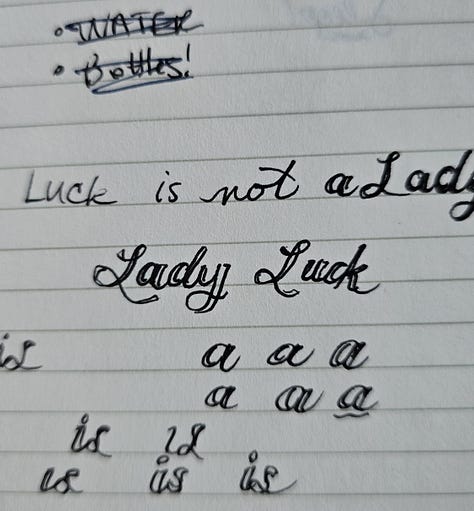 • WATER
• Bottles!
Luck is not a Lady
Lady Luck
is a a a
a a a
is is
is is is